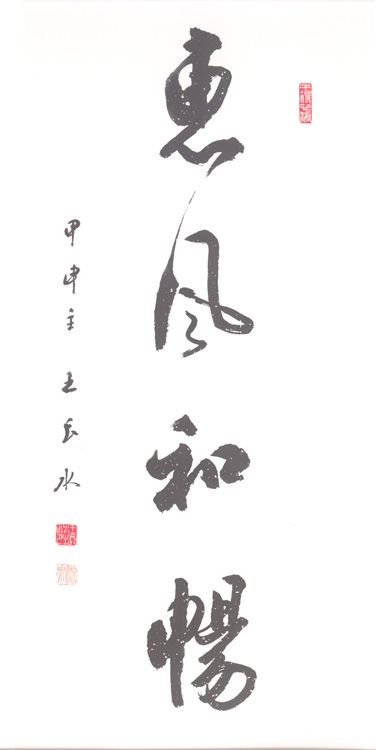 惠風和暢
甲申年 王長水